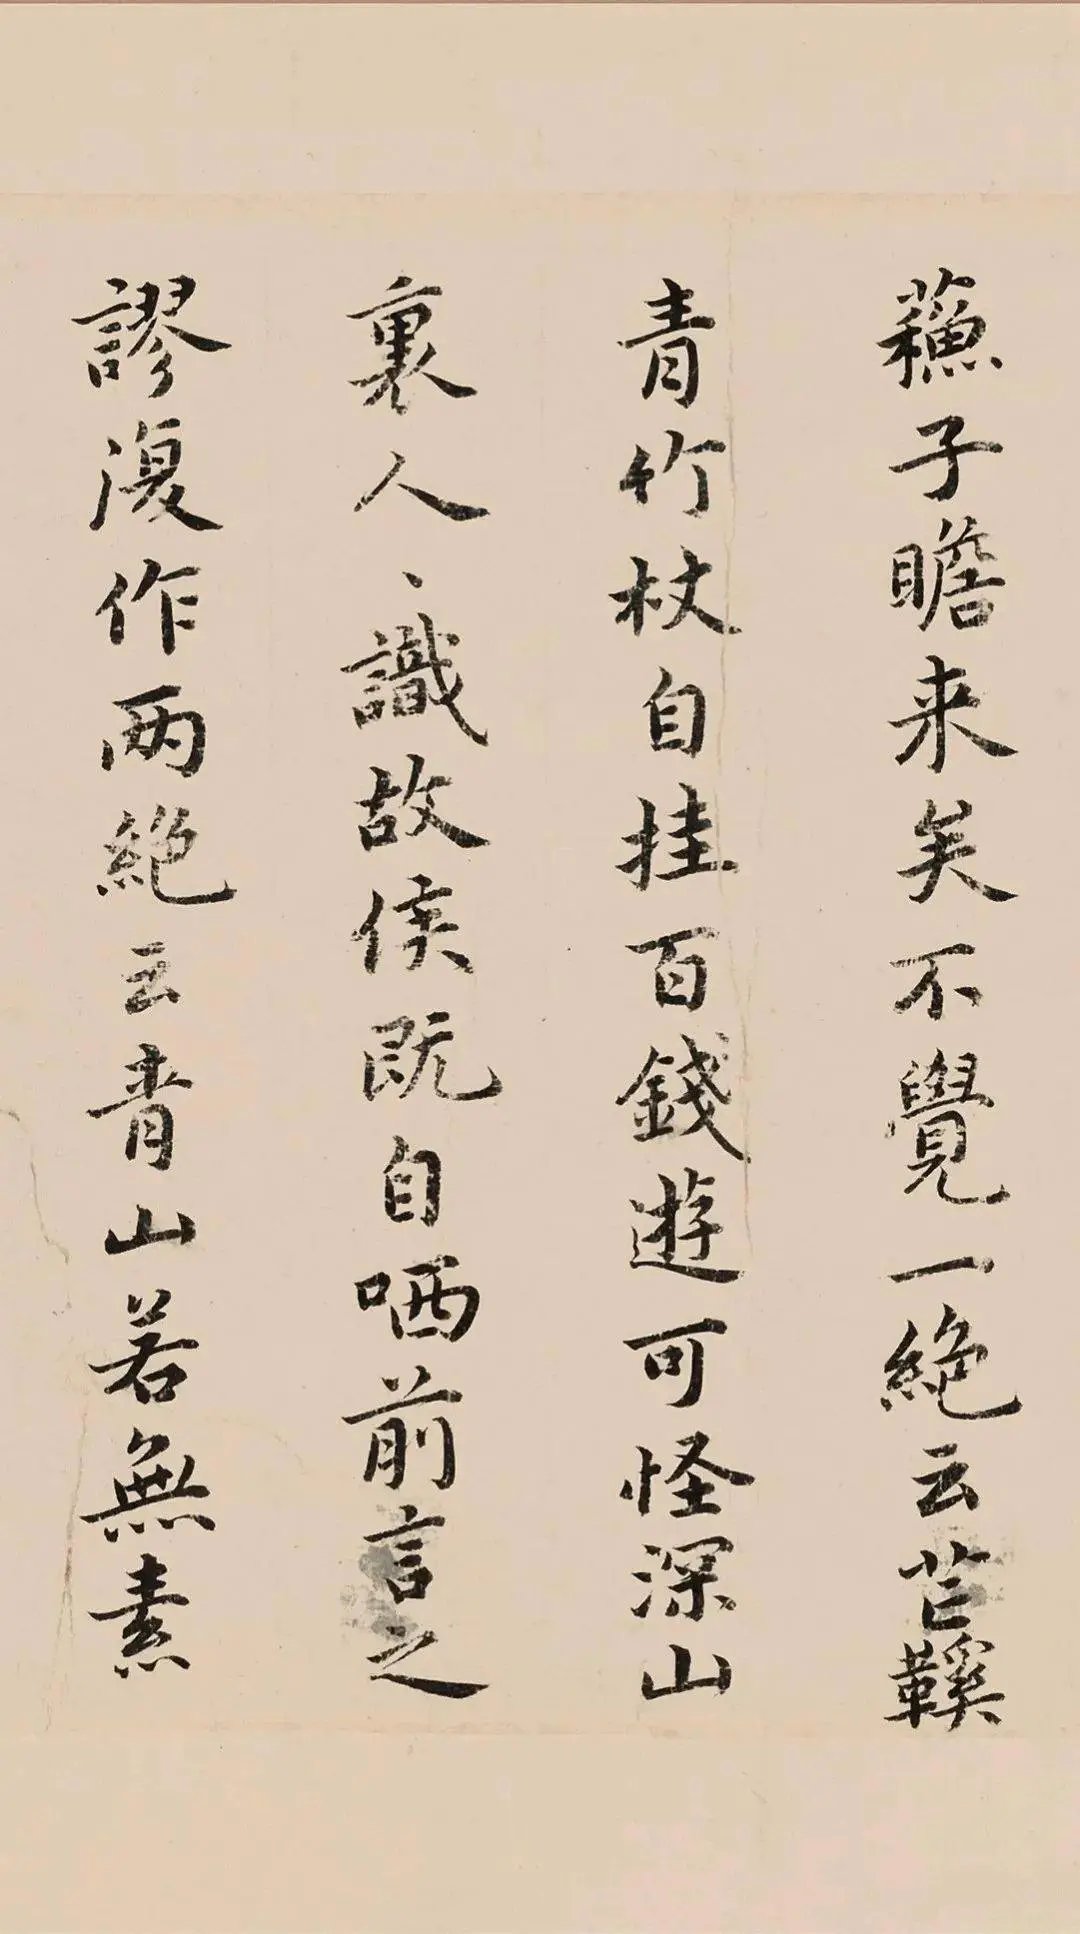 蘓子瞻来矣不覺一絶云芒鞵
青竹杖自挂百錢遊可怪深山
裏人、識故侯既自哂前言之
謬復作兩絶云青山若無素